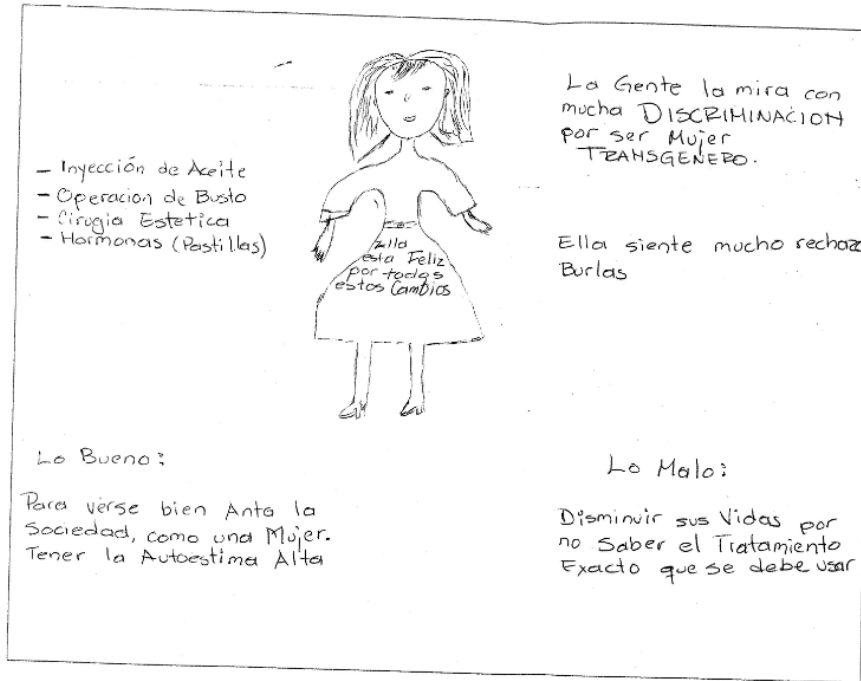 - Inyección de Aceite
- Operacion de Busto
- Cirugia Estetica
- Hormonas (Pastillas)
Ella
esta Feliz
por todos
estos Cambios
La Gente la mira con
mucha DISCRIMINACION
por ser Mujer
TRANSGENERO.
Ella siente mucho rechazo
Burlas
Lo Bueno:
Para verse bien Ante la
Sociedad, como una Mujer.
Tener la Autoestima Alta
Lo Malo:
Disminuir sus Vidas por
no Saber el Tratamiento
Exacto que se debe usar